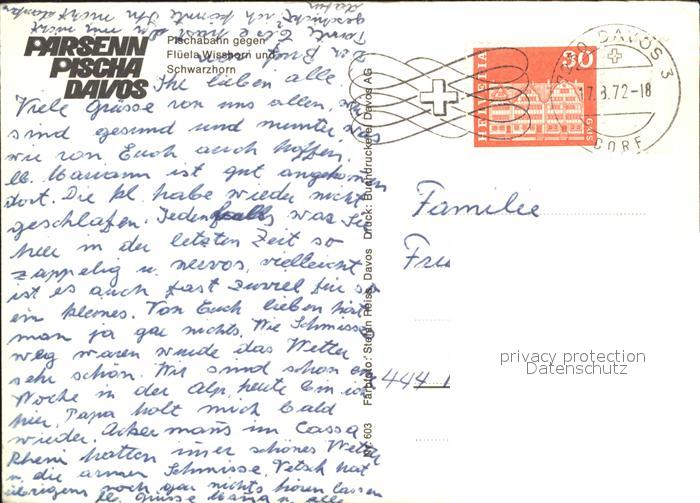 PARSENN
PISCHA
DAVOS
Pischabahn gegen
Flüela Wisshorn und
Schwarzhorn
Ihr lieben alle.
Viele Grüsse von uns allen, wir
sind gesund und munter, was
wir von Euch auch hoffen.
lb. Mariann ist gut angekommen
dort. Die kl. habe wieder nicht
geschlafen. Jedenfalls war Sie
hier in der letzten Zeit so
zappelig u. nervos, vielleicht
ist es auch fast zuviel für so
ein kleines. Von Euch lieben hört
man ja gar nichts. Wie Schmisse
weg waren wurde das Wetter
sehr schön. Wir sind schon ein
Woche in der Alp, heute bin ich
hier. Papa holt mich bald
wieder. Ackermans im Cassa
Rheni hatten imer schönes Wetter
u. die armen Schmisse. Vetsch hat
übrigens noch gar nichts hören lassen
lb. Grüsse Mama u. alle
Nr. 603 Farbfoto: Stefan Reiss, Davos Druck: Buchdruckerei Davos AG
HELVETIA
30
GAIS
DAVOS 3
17.8.72-18
DORF
Familie
Fru
444
privacy protection
Datenschutz